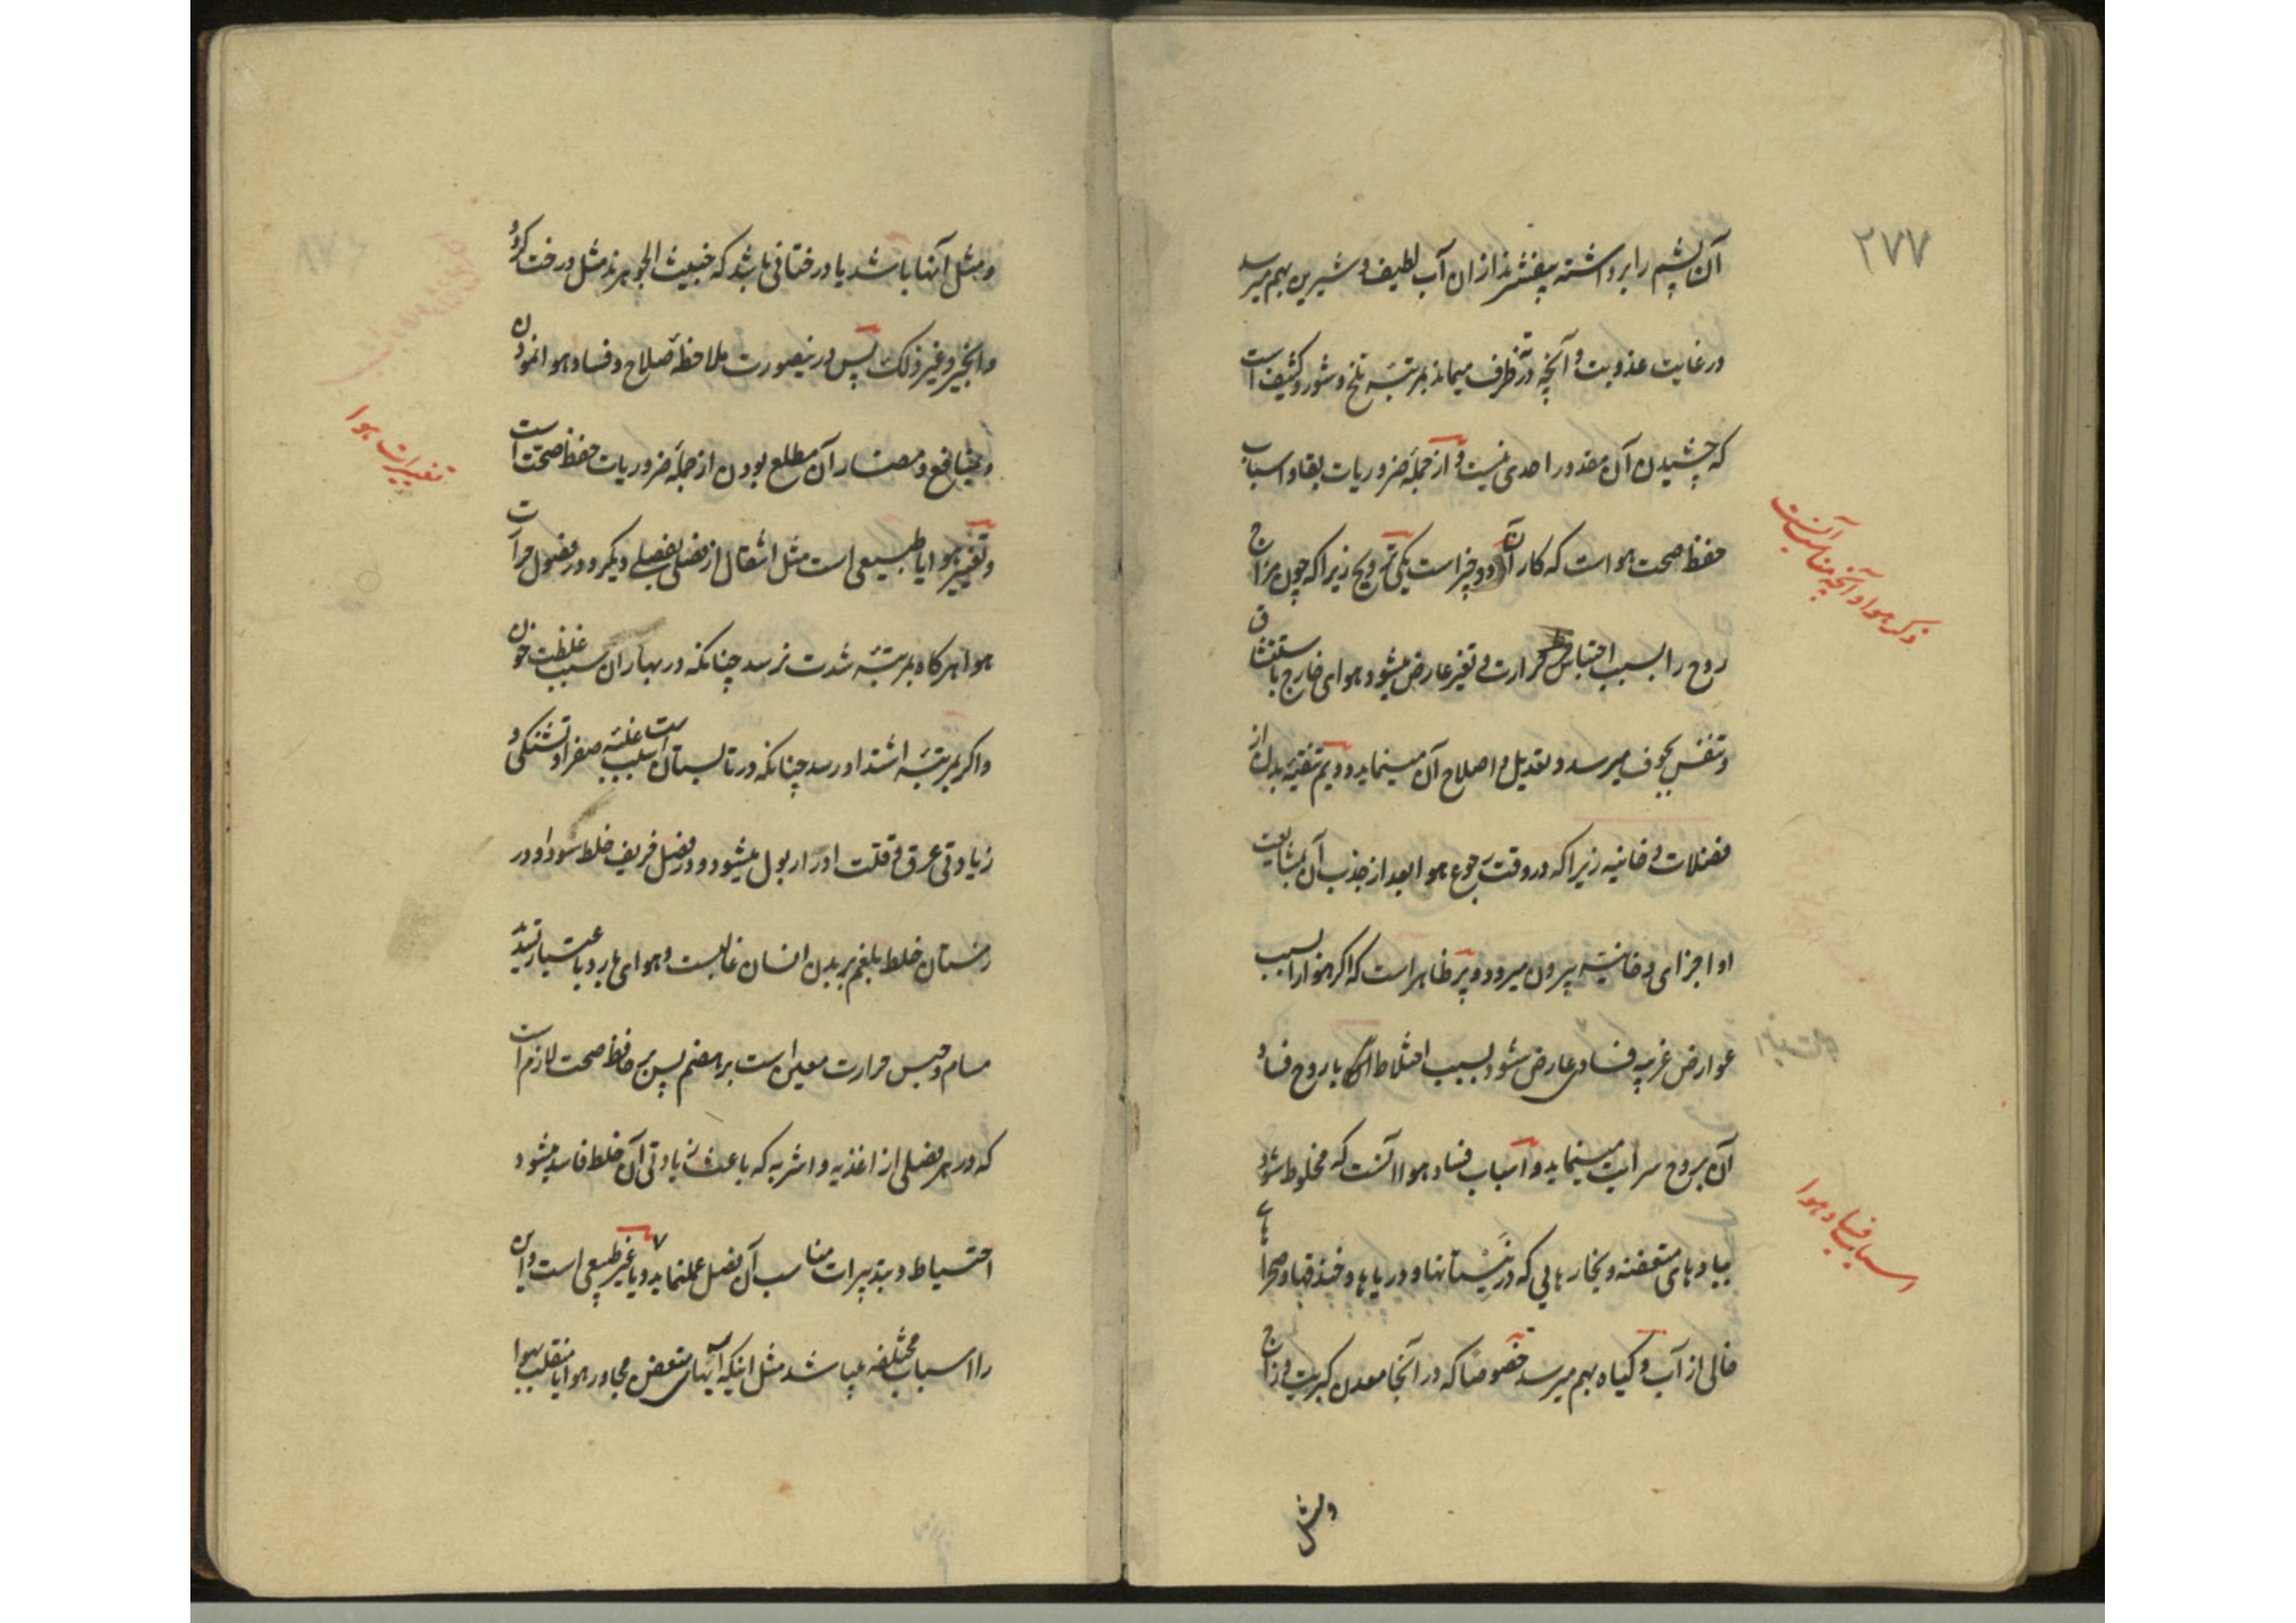 ۲۷۷
آن پشم را برداشته بیفشرند ازان آب لطیف و شیرین بهم میرسد
در غایت عذوبت و آنچه در ته ظرف میماند بمرتبهٔ تلخ و شور و کثیف است
که چشیدن آن مقدور احدی نیست و از جملهٔ ضروریات بقا و اسباب
ذکر هوا و آنچه مناسب آنست
حفظ صحت هواست که کار آن دو چیز است یکی ترویح زیرا که چون مزاج
روح را بسبب احتباس حرارت و تغیر عارض میشود هوای خارج باستنشاق
و تنفس بجوف میرسد و تعدیل و اصلاح آن مینماید و دویم تنقیهٔ بدن از
فضلات دخانیه زیرا که در وقت رجوع هوا بعد از جذب آن بمشایعت
او اجزای دخانیه بیرون میرود و پر ظاهر است که اگر هوا را بسبب
عوارض غریبه فسادی عارض شود بسبب اختلاط آن با روح فساد
آن بروح سرایت مینماید و اسباب فساد هوا آنست که مخلوط شود
اسباب فساد هوا
ببادهای متعفنه و بخارهایی که در نیستانها و دریاها و خندقها و صحراهای
خالی از آب و گیاه بهم میرسد خصوصا که در آنجا معدن کبریت و زاج
و مثل
و مثل آنها باشد یا درختانی باشد که خبیث الجوهرند مثل درخت گردو
و انجیر و غیر ذلک پس درینصورت ملاحظهٔ صلاح و فساد هوا نمودن
تغییرات هوا
و بمنافع و مضار آن مطلع بودن از جملهٔ ضروریات حفظ صحت است
و تغییر هوا یا طبیعی است مثل انتقال از فصلی بفصلی دیگر و در فصول حرارت
هوا هرگاه بمرتبهٔ شدت نرسد چنانکه در بهاران سبب غلظت خون
و اگر بمرتبهٔ اشتداد رسد چنانکه در تابستان است سبب غلبهٔ صفرا و تشنگی و
زیادتی عرق و قلت ادرار بول میشود و در فصل خریف خلط سودا و در
زمستان خلط بلغم بر بدن انسان غالبست و هوای بارد باعتبار تسدید
مسام و حبس حرارت معین است بر هضم پس بر حافظ صحت لازم است
که در هر فصلی از اغذیه و اشربه که باعث زیادتی آن خلط فاسد میشود
احتیاط و بتدبیرات مناسب آن فصل عمل نماید و یا غیر طبیعی است و این
را اسباب مختلفه میباشد مثل اینکه آبهای متعفن مجاور هوا یا منقلب بهوا